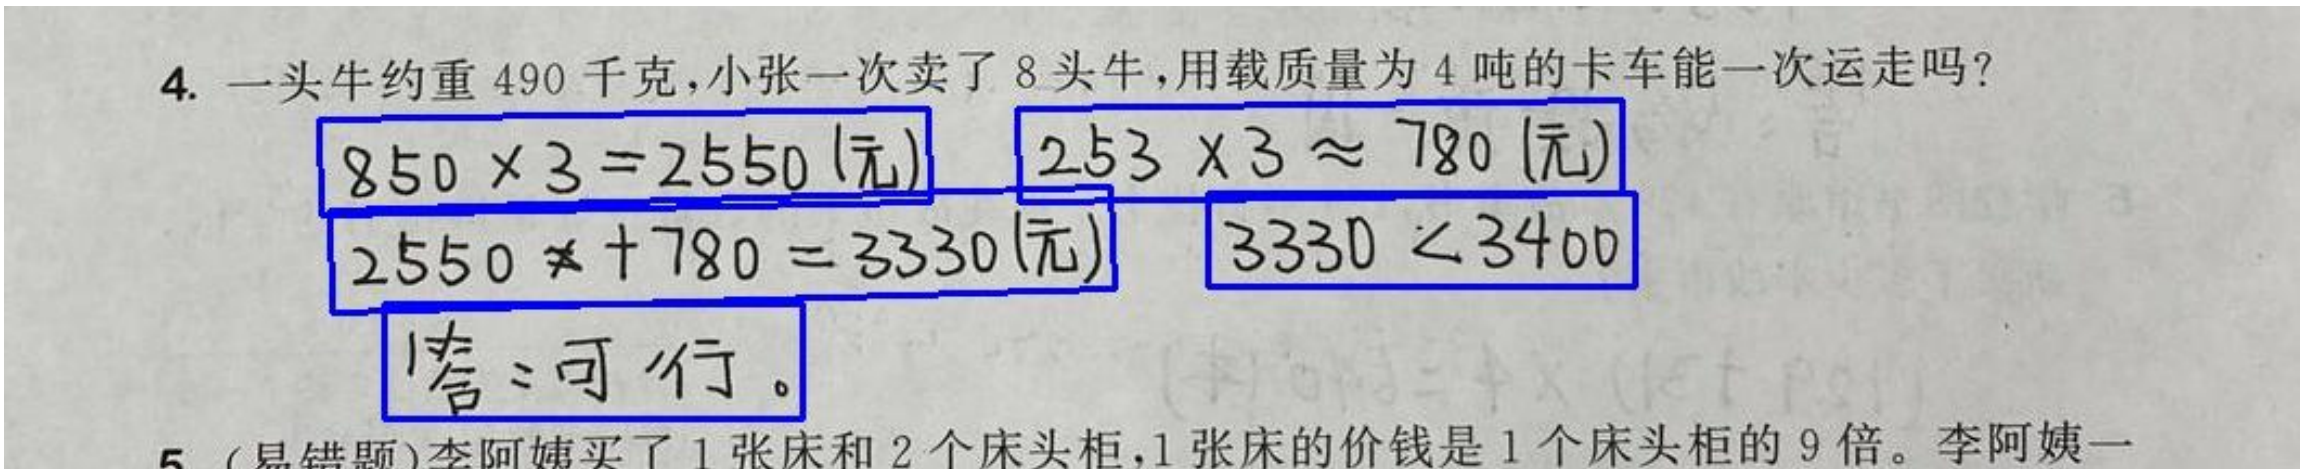 4. 一头牛约重 490 千克,小张一次卖了 8 头牛,用载质量为 4 吨的卡车能一次运走吗?
850 × 3 = 2550 (元) 253 × 3 ≈ 780 (元)
2550 × + 780 = 3330 (元) 3330 < 3400
答:可行。
5. (易错题)李阿姨买了 1 张床和 2 个床头柜,1 张床的价钱是 1 个床头柜的 9 倍。李阿姨一